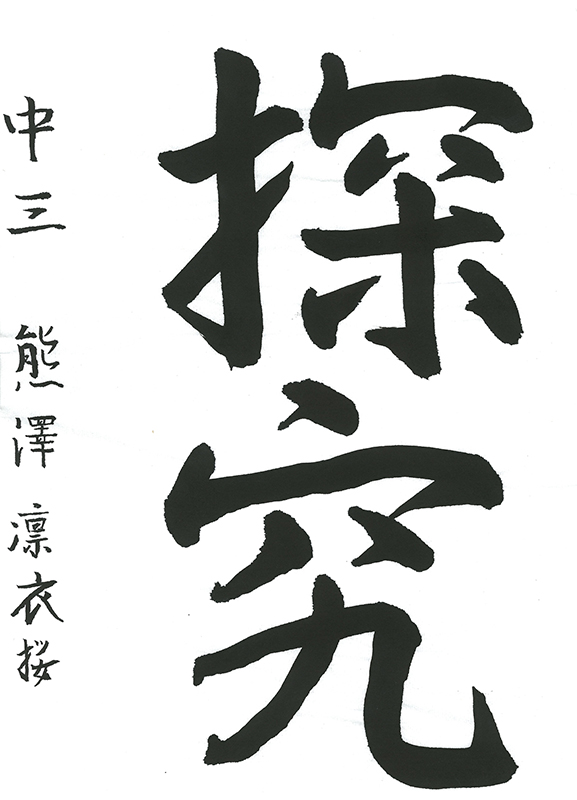 探究
中三 熊澤 凛衣桜